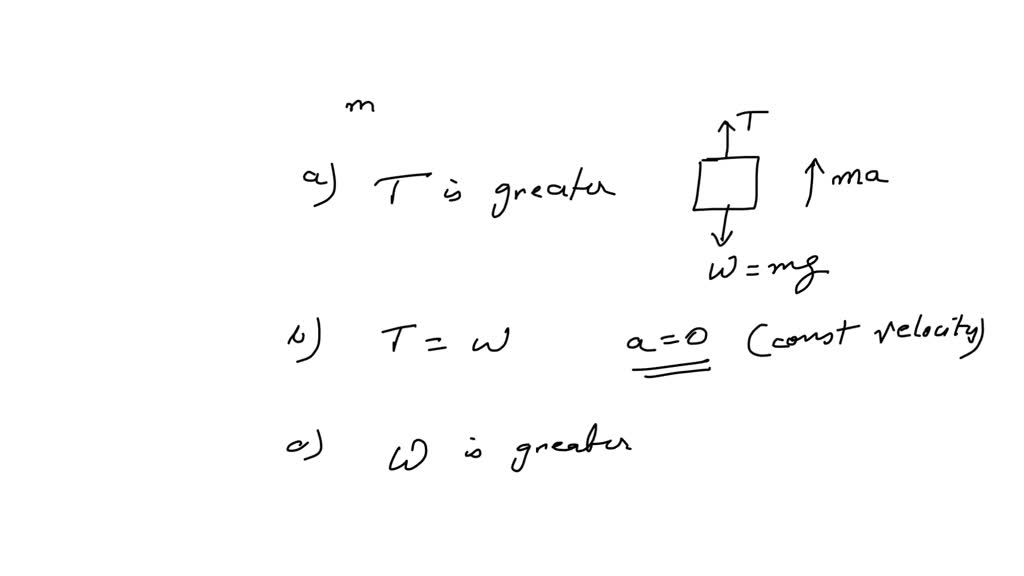 m
T
a) T is greater
ma
W = mg
b) T = W a = 0 (const velocity)
c) W is greater